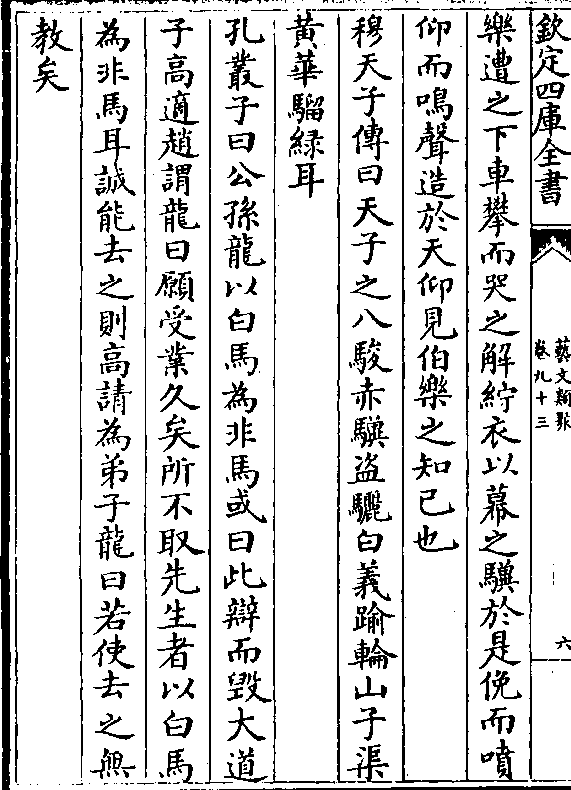 欽定四庫全書
藝文類聚
卷九十三
六
樂遭之下車攀而哭之解紵衣以幕之驥於是俛而噴
仰而鳴聲造於天仰見伯樂之知已也
穆天子傳曰天子之八駿赤驥盗驪白義踰輪山子渠
黄華騮緑耳
孔叢子曰公孫龍以白馬為非馬或曰此辯而毀大道
子高適趙謂龍曰願受業久矣所不取先生者以白馬
為非馬耳誠能去之則高請為弟子龍曰若使去之無
教矣